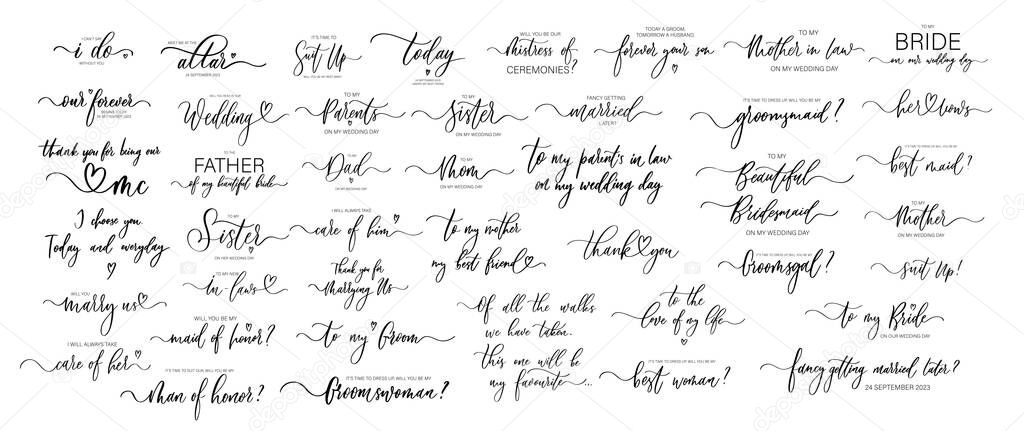 I CAN'T SAY
i do
WITHOUT YOU
MEET ME AT THE
altar
24 SEPTEMBER 2023
IT'S TIME TO
Suit Up
WILL YOU BE MY BEST MAN?
today
24 SEPTEMBER 2023
WILL YOU BE OUR
Mistress of
CEREMONIES?
TODAY A GROOM,
TOMORROW A HUSBAND,
forever your son
TO MY
Mother in law
ON MY WEDDING DAY
TO MY
BRIDE
on our wedding day
our forever
WILL YOU READ IN OUR
Wedding
TO MY
Parents
ON MY WEDDING DAY
TO MY
Sister
ON MY WEDDING DAY
FANCY GETTING
married
LATER?
IT'S TIME TO DRESS UP, WILL YOU BE MY
groomsmaid?
her vows
thank you for being our
mc
TO THE
FATHER
of my beautiful bride
TO MY
Dad
ON MY WEDDING DAY
TO MY
Mom
ON MY WEDDING DAY
to my parent's in law
on my wedding day
TO MY
Beautiful
Bridesmaid
ON MY WEDDING DAY
IT'S TIME TO DRESS UP, WILL YOU BE MY
best maid?
I choose you.
Today and everyday
TO MY
Sister
ON HER WEDDING DAY
I WILL ALWAYS TAKE
care of him
to my mother
my best friend
thank you
IT'S TIME TO DRESS UP, WILL YOU BE MY
Groomsgal?
TO MY
Mother
ON MY WEDDING DAY
suit Up!
WILL YOU
marry us
TO MY NEW
in laws
Thank you for
Marrying Us
Of all the walks
we have taken...
this one will be
my favourite...
to the
love of my life
to my Bride
ON OUR WEDDING DAY
I WILL ALWAYS TAKE
care of her
WILL YOU BE MY
maid of honor?
to my Groom
IT'S TIME TO SUIT OUR, WILL YOU BE MY
Man of honor?
IT'S TIME TO DRESS UP, WILL YOU BE MY
Groomswoman?
IT'S TIME TO DRESS UP, WILL YOU BE MY
best woman?
fancy getting married later?
24 SEPTEMBER 2023